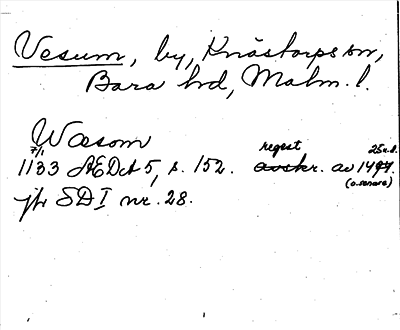 Vesum, by, Knästorps sn,
Bara hd, Malm. l.
Wæsom
7/1 regest 25 u.å.
1133 ÆDA 5, s. 152. avskr. av 1494.
(o. senare)
jfr SD I nr. 28.